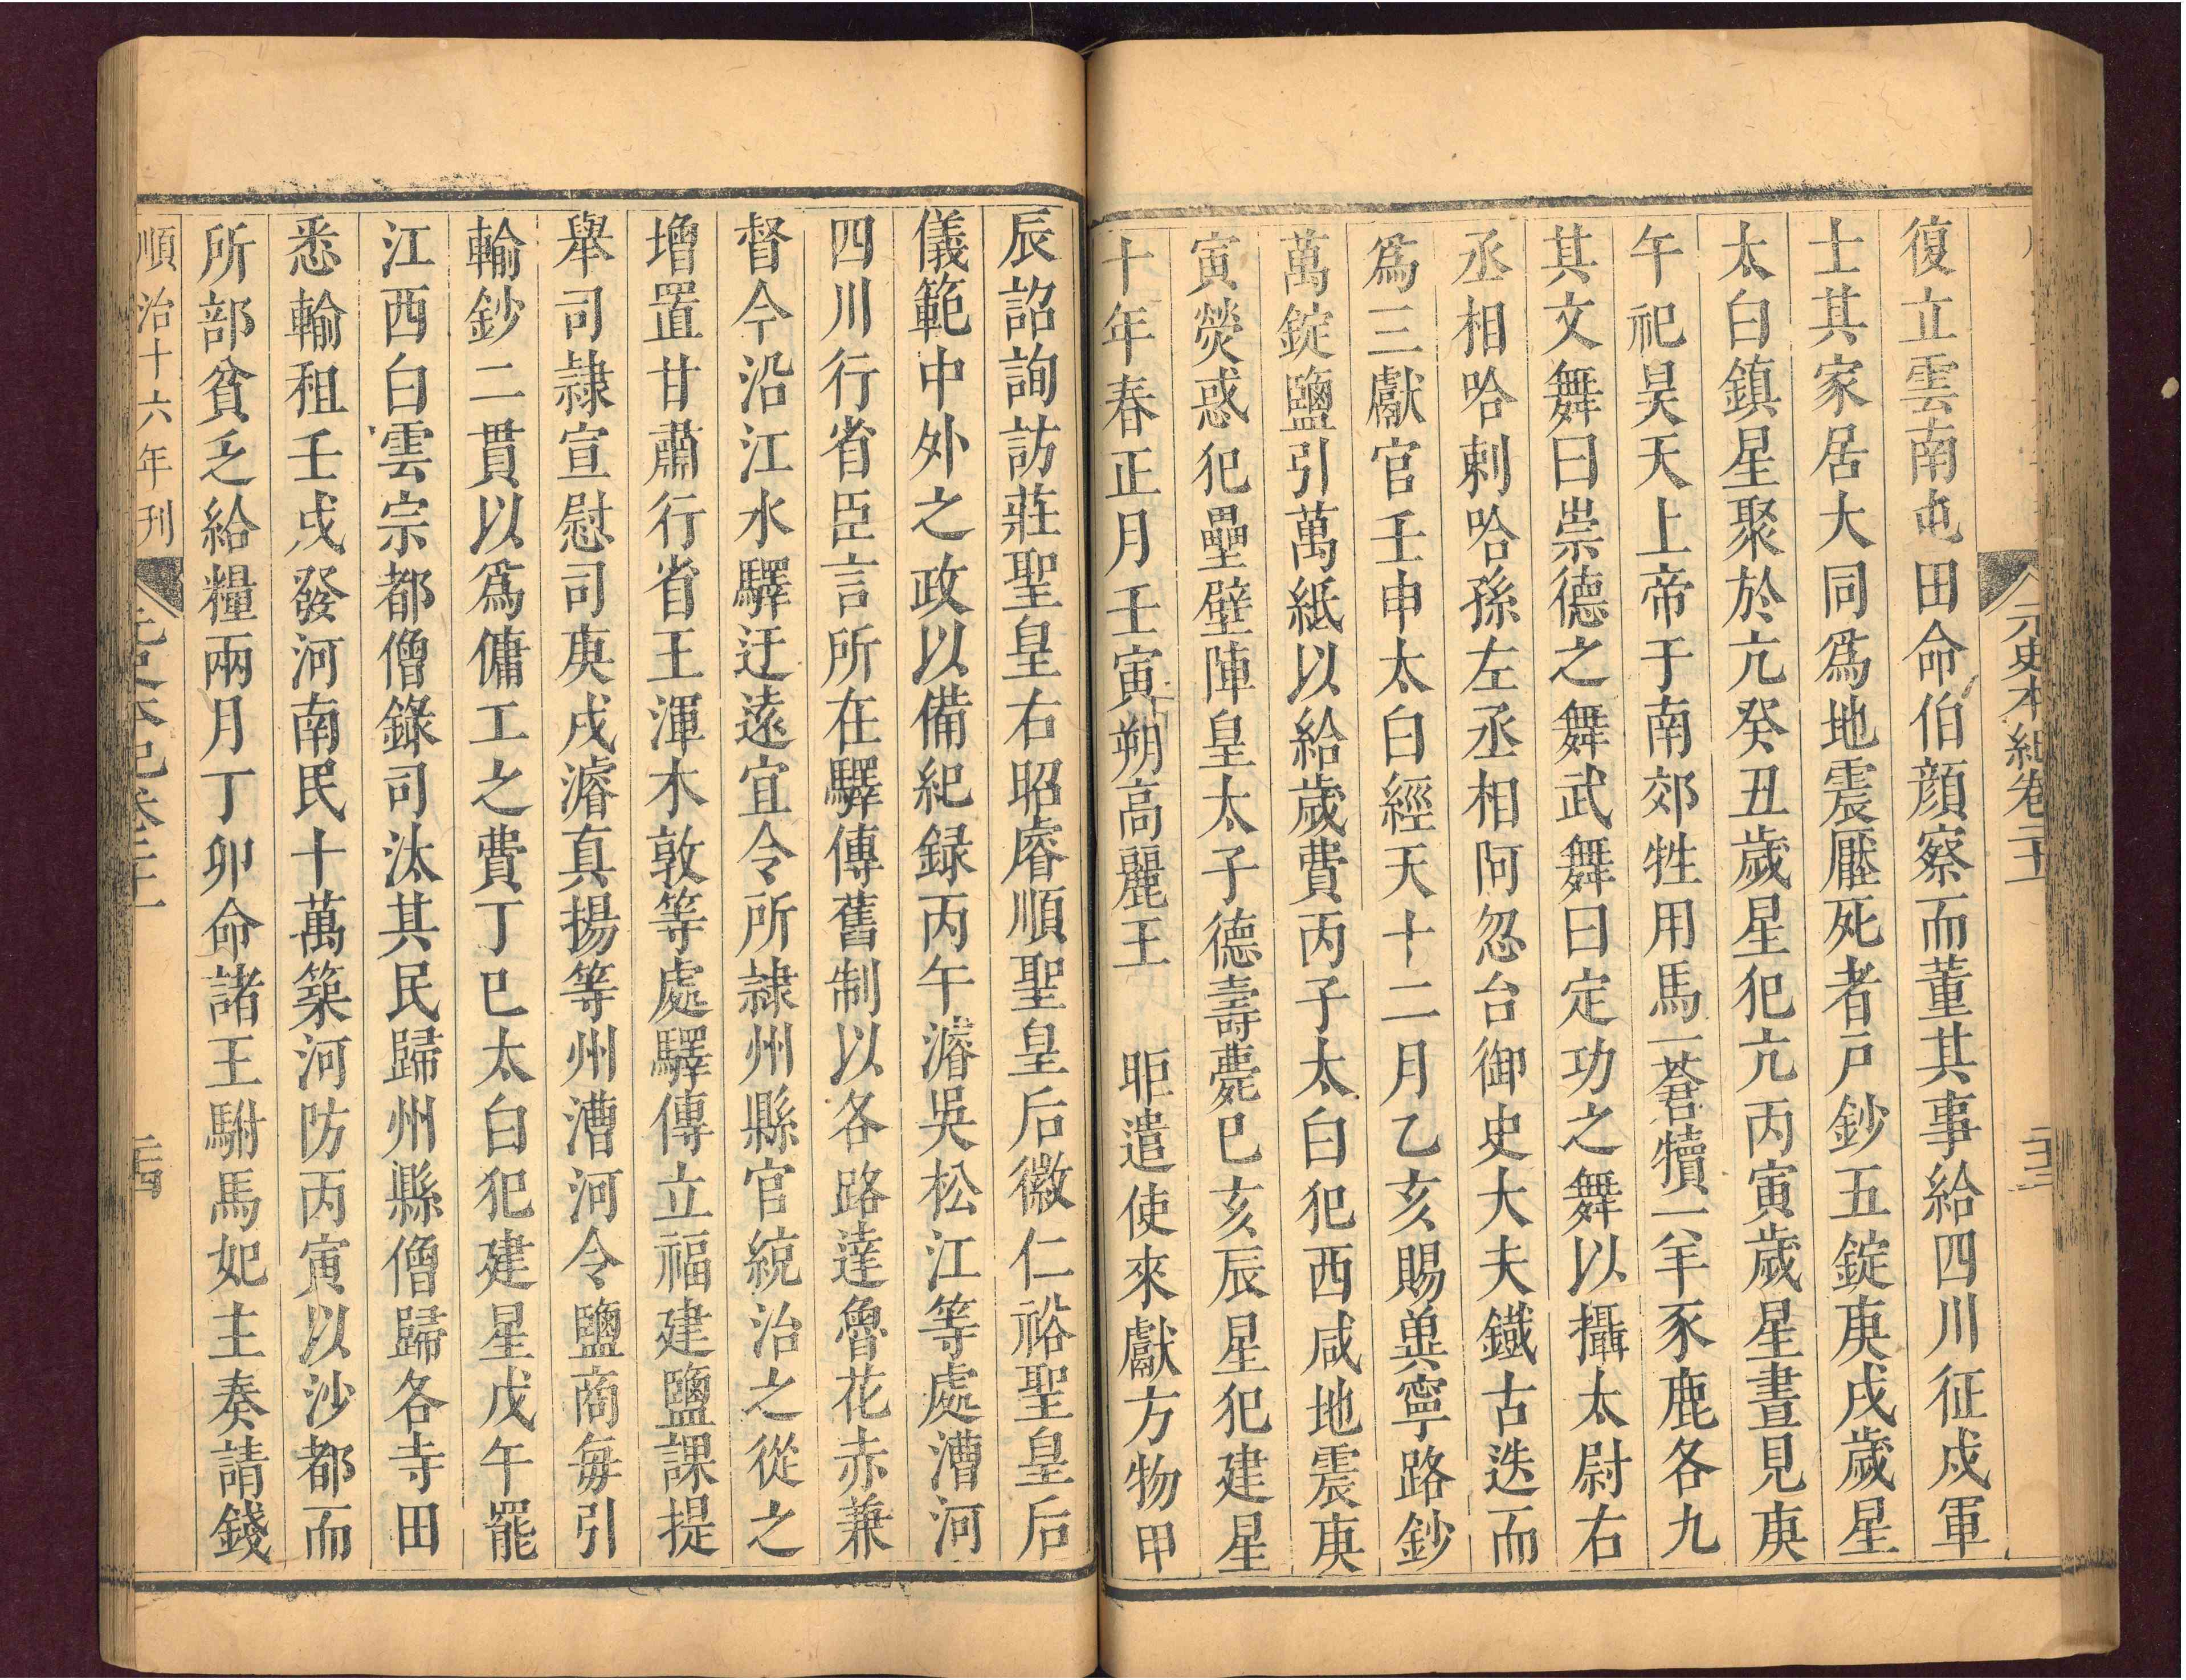 元史本紀卷二十一
二十三
復立雲南屯田命伯顔察而董其事給四川征戍軍
士其家居大同爲地震壓死者戸鈔五錠庚戌歲星
太白鎮星聚於亢癸丑歲星犯亢丙寅歲星晝見庚
午祀昊天上帝于南郊牲用馬一蒼犢一羊豕鹿各九
其文舞曰崇德之舞武舞曰定功之舞以攝太尉右
丞相哈剌哈孫左丞相阿忽台御史大夫鐵古迭而
爲三獻官壬申太白經天十二月乙亥賜興寧路鈔
萬錠鹽引萬紙以給歲費丙子太白犯西咸地震庚
寅熒惑犯壘壁陣皇太子德壽薨已亥辰星犯建星
十年春正月壬寅朔高麗王 昛遣使來獻方物甲
辰詔詢訪莊聖皇右昭睿順聖皇后徽仁裕聖皇后
儀範中外之政以備紀録丙午濬吳松江等處漕河
四川行省臣言所在驛傳舊制以各路達魯花赤兼
督今沿江水驛迂遠宜令所隷州縣官統治之從之
增置甘肅行省王渾木敦等處驛傳立福建鹽課提
舉司隷宣慰司庚戌濬真揚等州漕河令鹽商每引
輸鈔二貫以爲傭工之費丁巳太白犯建星戊午罷
江西白雲宗都僧錄司汰其民歸州縣僧歸各寺田
悉輸租壬戌發河南民十萬築河防丙寅以沙都而
所部貧乏給糧兩月丁卯命諸王駙馬妃主奏請錢
順治十六年刊
元史本紀卷二十一
二十四